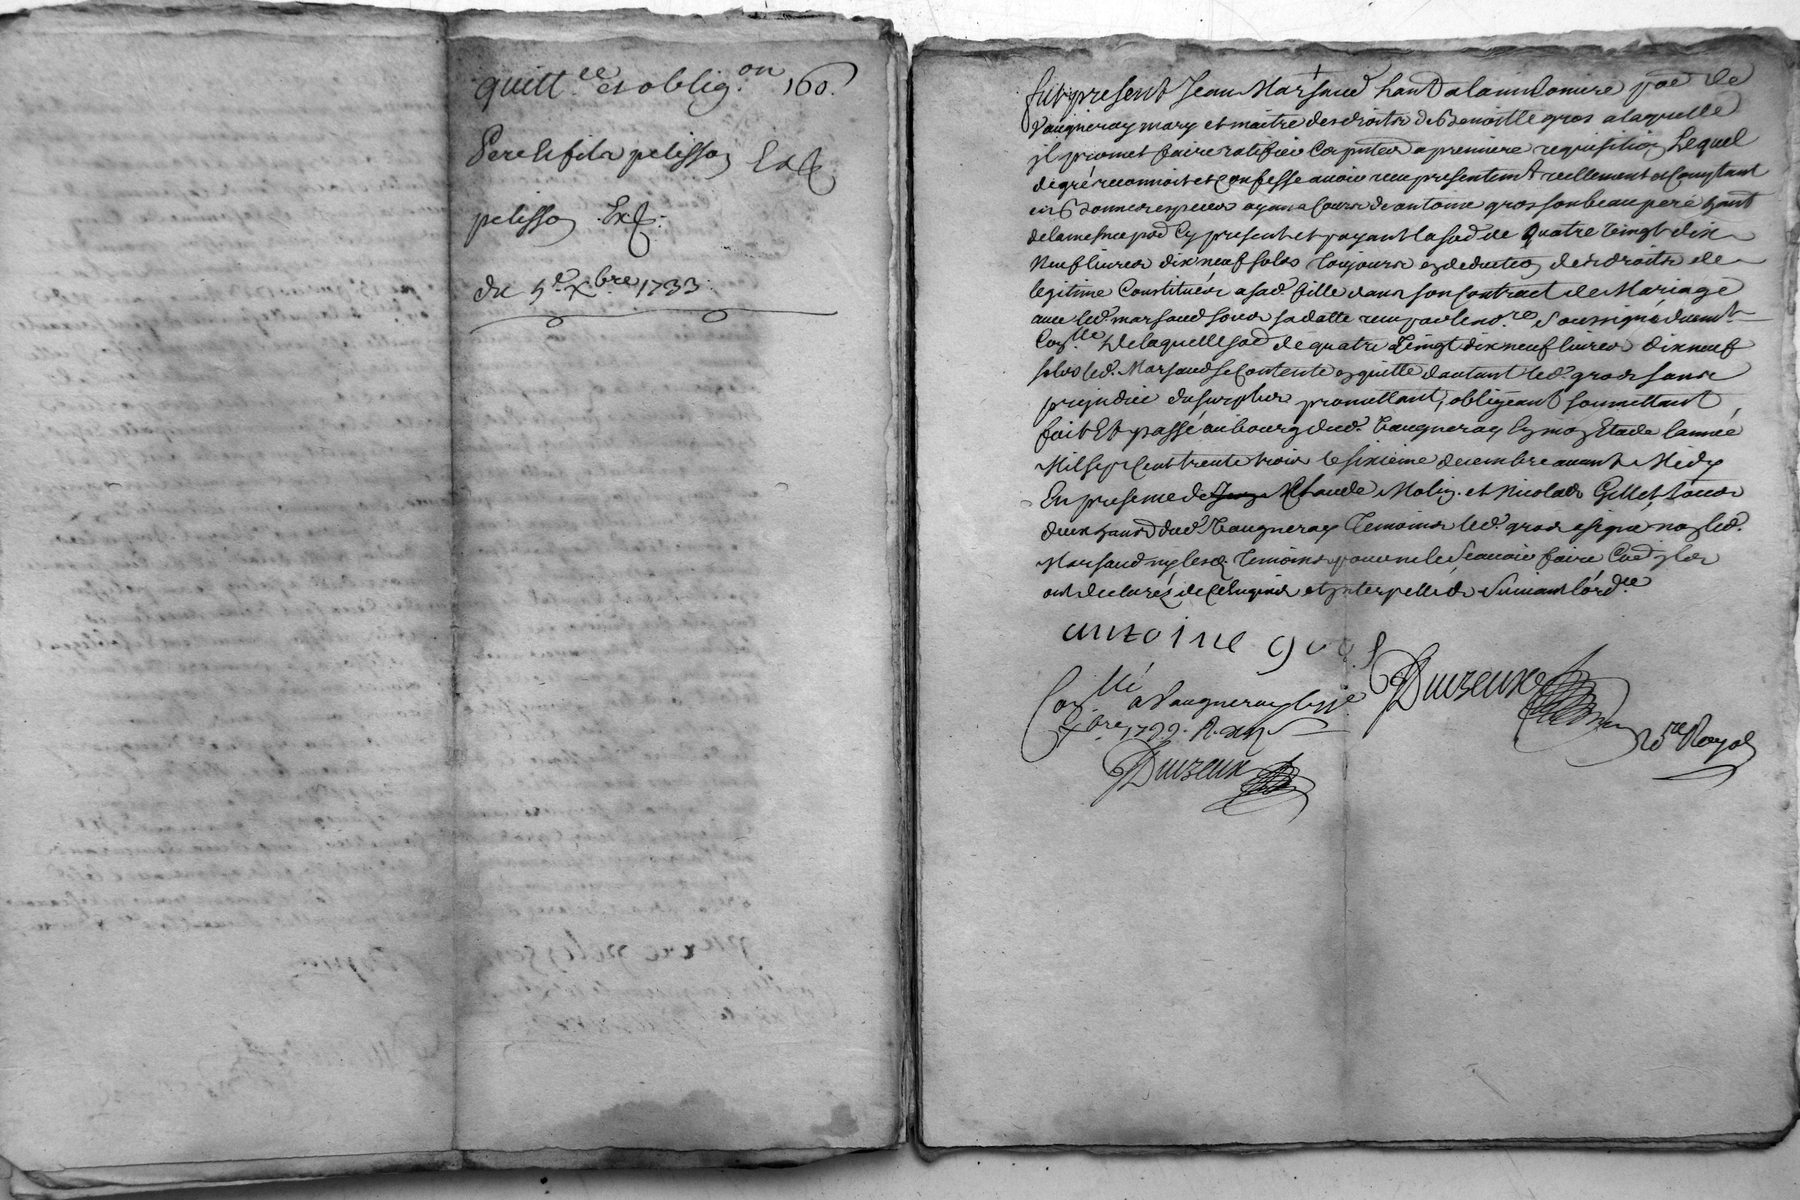 quitt.ce et oblig.on 160.
Pere et fils pelisson Ext
pelisson Ext.
du 5.e Xbre 1733.
fut present Jean Marsaud hant a la mi parr de
Vaugneray mary et maitre des droits de Benoitte gros a laquelle
jl promet faire ratifier a premiere requisition Lequel
de gré reconnoit et confesse avoir reçu presentement reellement et comptant
en bonnes especes de antoine gros son beau pere hant
de la mesme parr Cy present et payant la so.e de quatre Vingt dix
neuf livres dix neuf solds toujours en deduction des droits de
legitime Constitués a sad. fille dans son Contract de Mariage
avec led. marsaud sous sa datte reçu par le no.re Soussigné duement
Con.llé De laquelle so.e de quatre Vingt dix neuf livres dix neuf
solds led. Marsaud se Contente en quitte d'autant led. gros sans
prejudice du surplus promettant, obligeant soumettant,
fait Et passé au bourg dud. Vaugneray En mon Etude l'année
Mil sept Cent trente trois le sixieme decembre avant Midy
En presence de Claude Molin et Nicolas Gillet tous
deux hants dud. Vaugneray temoins led. gros a signé non led.
Marsaud ny lesd. temoins pour ne le Scavoir faire jls
ont declarés de Ce enquis et interpellés Suivant l'ord.ce
antoine gros
Con.llé a Vaugneray le
Xbre 1733. R. xii s
Duizeux
Duizeux
No.re Royal